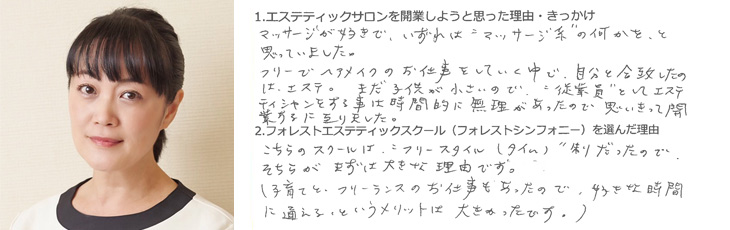 1.エステティックサロンを開業しようと思った理由・きっかけ
マッサージが好きで、いずれは"マッサージ系"の何かを、と
思っていました。
フリーでヘアメイクのお仕事をしていく中で、自分と合致したの
は、エステ。まだ子供が小さいので、"従業員"としてエステ
ティシャンをする事は時間的に無理があったので思いきって開
業するに至りました。
2.フォレストエステティックスクール（フォレストシンフォニー）を選んだ理由
こちらのスクールは、"フリースタイル(タイム)"制だったので、
そちらがまずは大きな理由です。
(子育てと、フリーランスのお仕事もあったので、好きな時間
に通える、というメリットは大きかったです。)